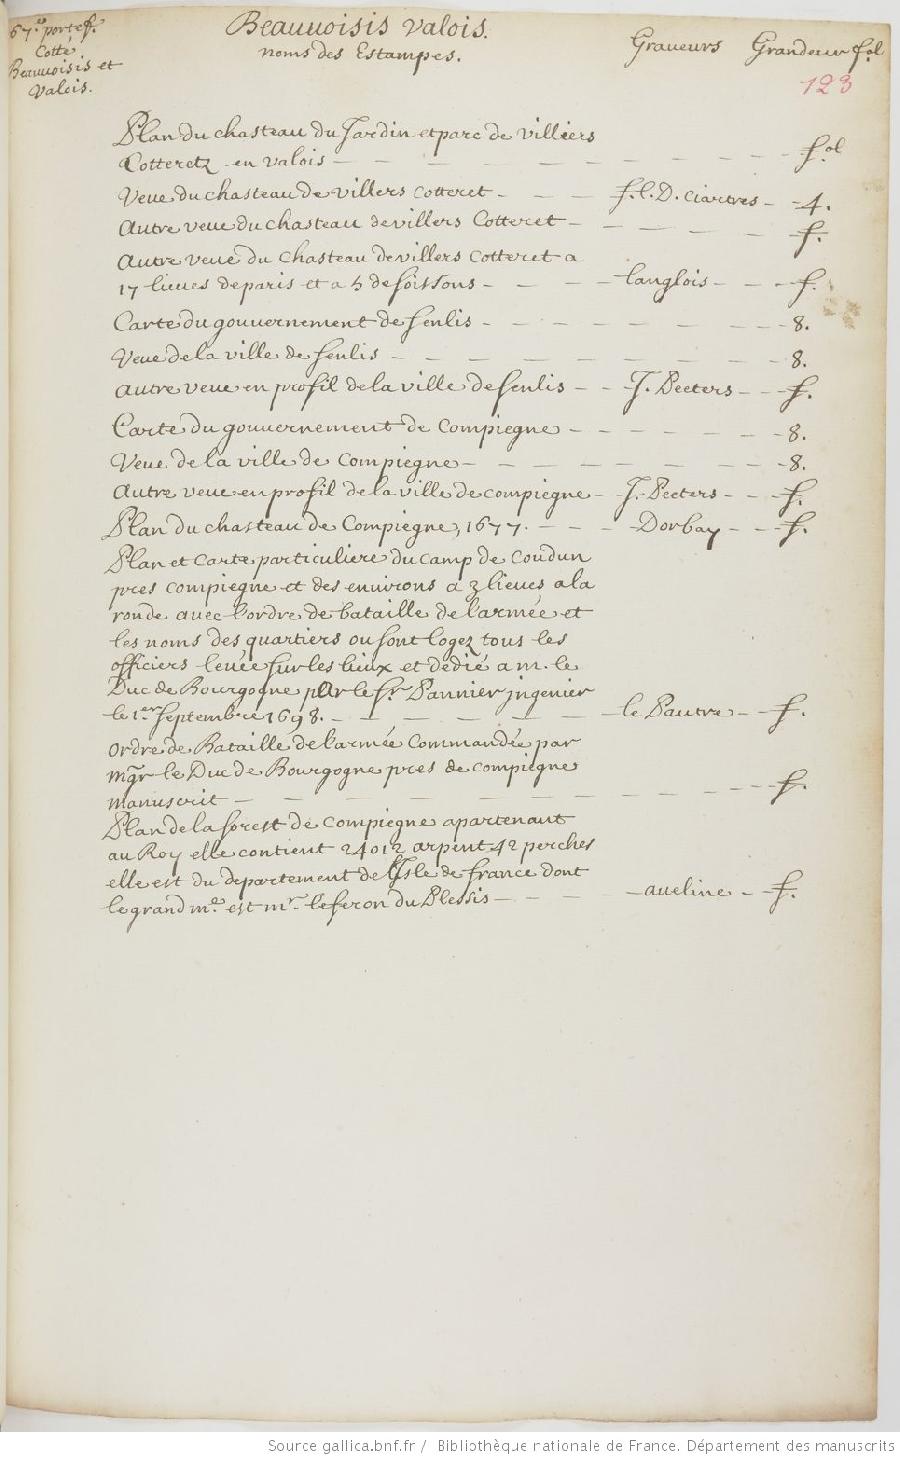 67.e portef.
Cotté
Beauuoisis et
Valois.
Beauuoisis Valois.
noms des Estampes.
Graveurs
Grandeur fol
123
Plan du chasteau du Jardin et parc de villiers
Cotteretz en valois - - - - - - - - fol
Veue du chasteau de villers Cotteret - - - f. l. D. Ciartres - 4.
Autre veue du chasteau de villers Cotteret - - - - - f.
Autre veue du Chasteau de villers Cotteret a
17 lieues de paris et a 5 de soissons - - - - Langlois - - - f.
Carte du gouuernement de senlis - - - - - - - - 8.
Veue de la ville de senlis - - - - - - - - - 8.
Autre veue en profil de la ville de senlis - - J. Peeters - - - f.
Carte du gouuernement de Compiegne - - - - - - - 8.
Veue de la ville de Compiegne - - - - - - - - 8.
Autre veue en profil de la ville de compiegne - J. Peeters - - - f.
Plan du chasteau de Compiegne, 1677. - - - Dorbay - - - f.
Plan et Carte particuliere du camp de Coudun
pres compiegne et des enuirons a 3 lieues a la
ronde auec l'ordre de bataille de l'armée et
les noms des quartiers ou sont logez tous les
officiers leuée sur les lieux et dedié a m. le
Duc de Bourgogne par le sr. Pannier jngenier
le 1.er septembre 1698. - - - - - - le Pautre - - f.
Ordre de Bataille de l'armée Commandée par
Mgr le Duc de Bourgogne pres de compiegne
manuscrit - - - - - - - - - - - f.
Plan de la forest de Compiegne apartenant
au Roy elle contient 24012 arpent 42 perches
elle est du departement de l'Isle de france dont
le grand me. est mr. le feron du Plessis - - - - aueline - - f.
Source gallica.bnf.fr / Bibliothèque nationale de France. Département des manuscrits